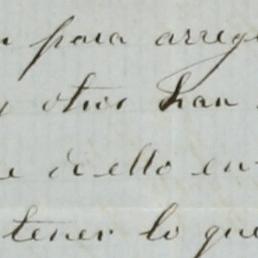 para arreg
y otros han
e de ello en
tener lo que